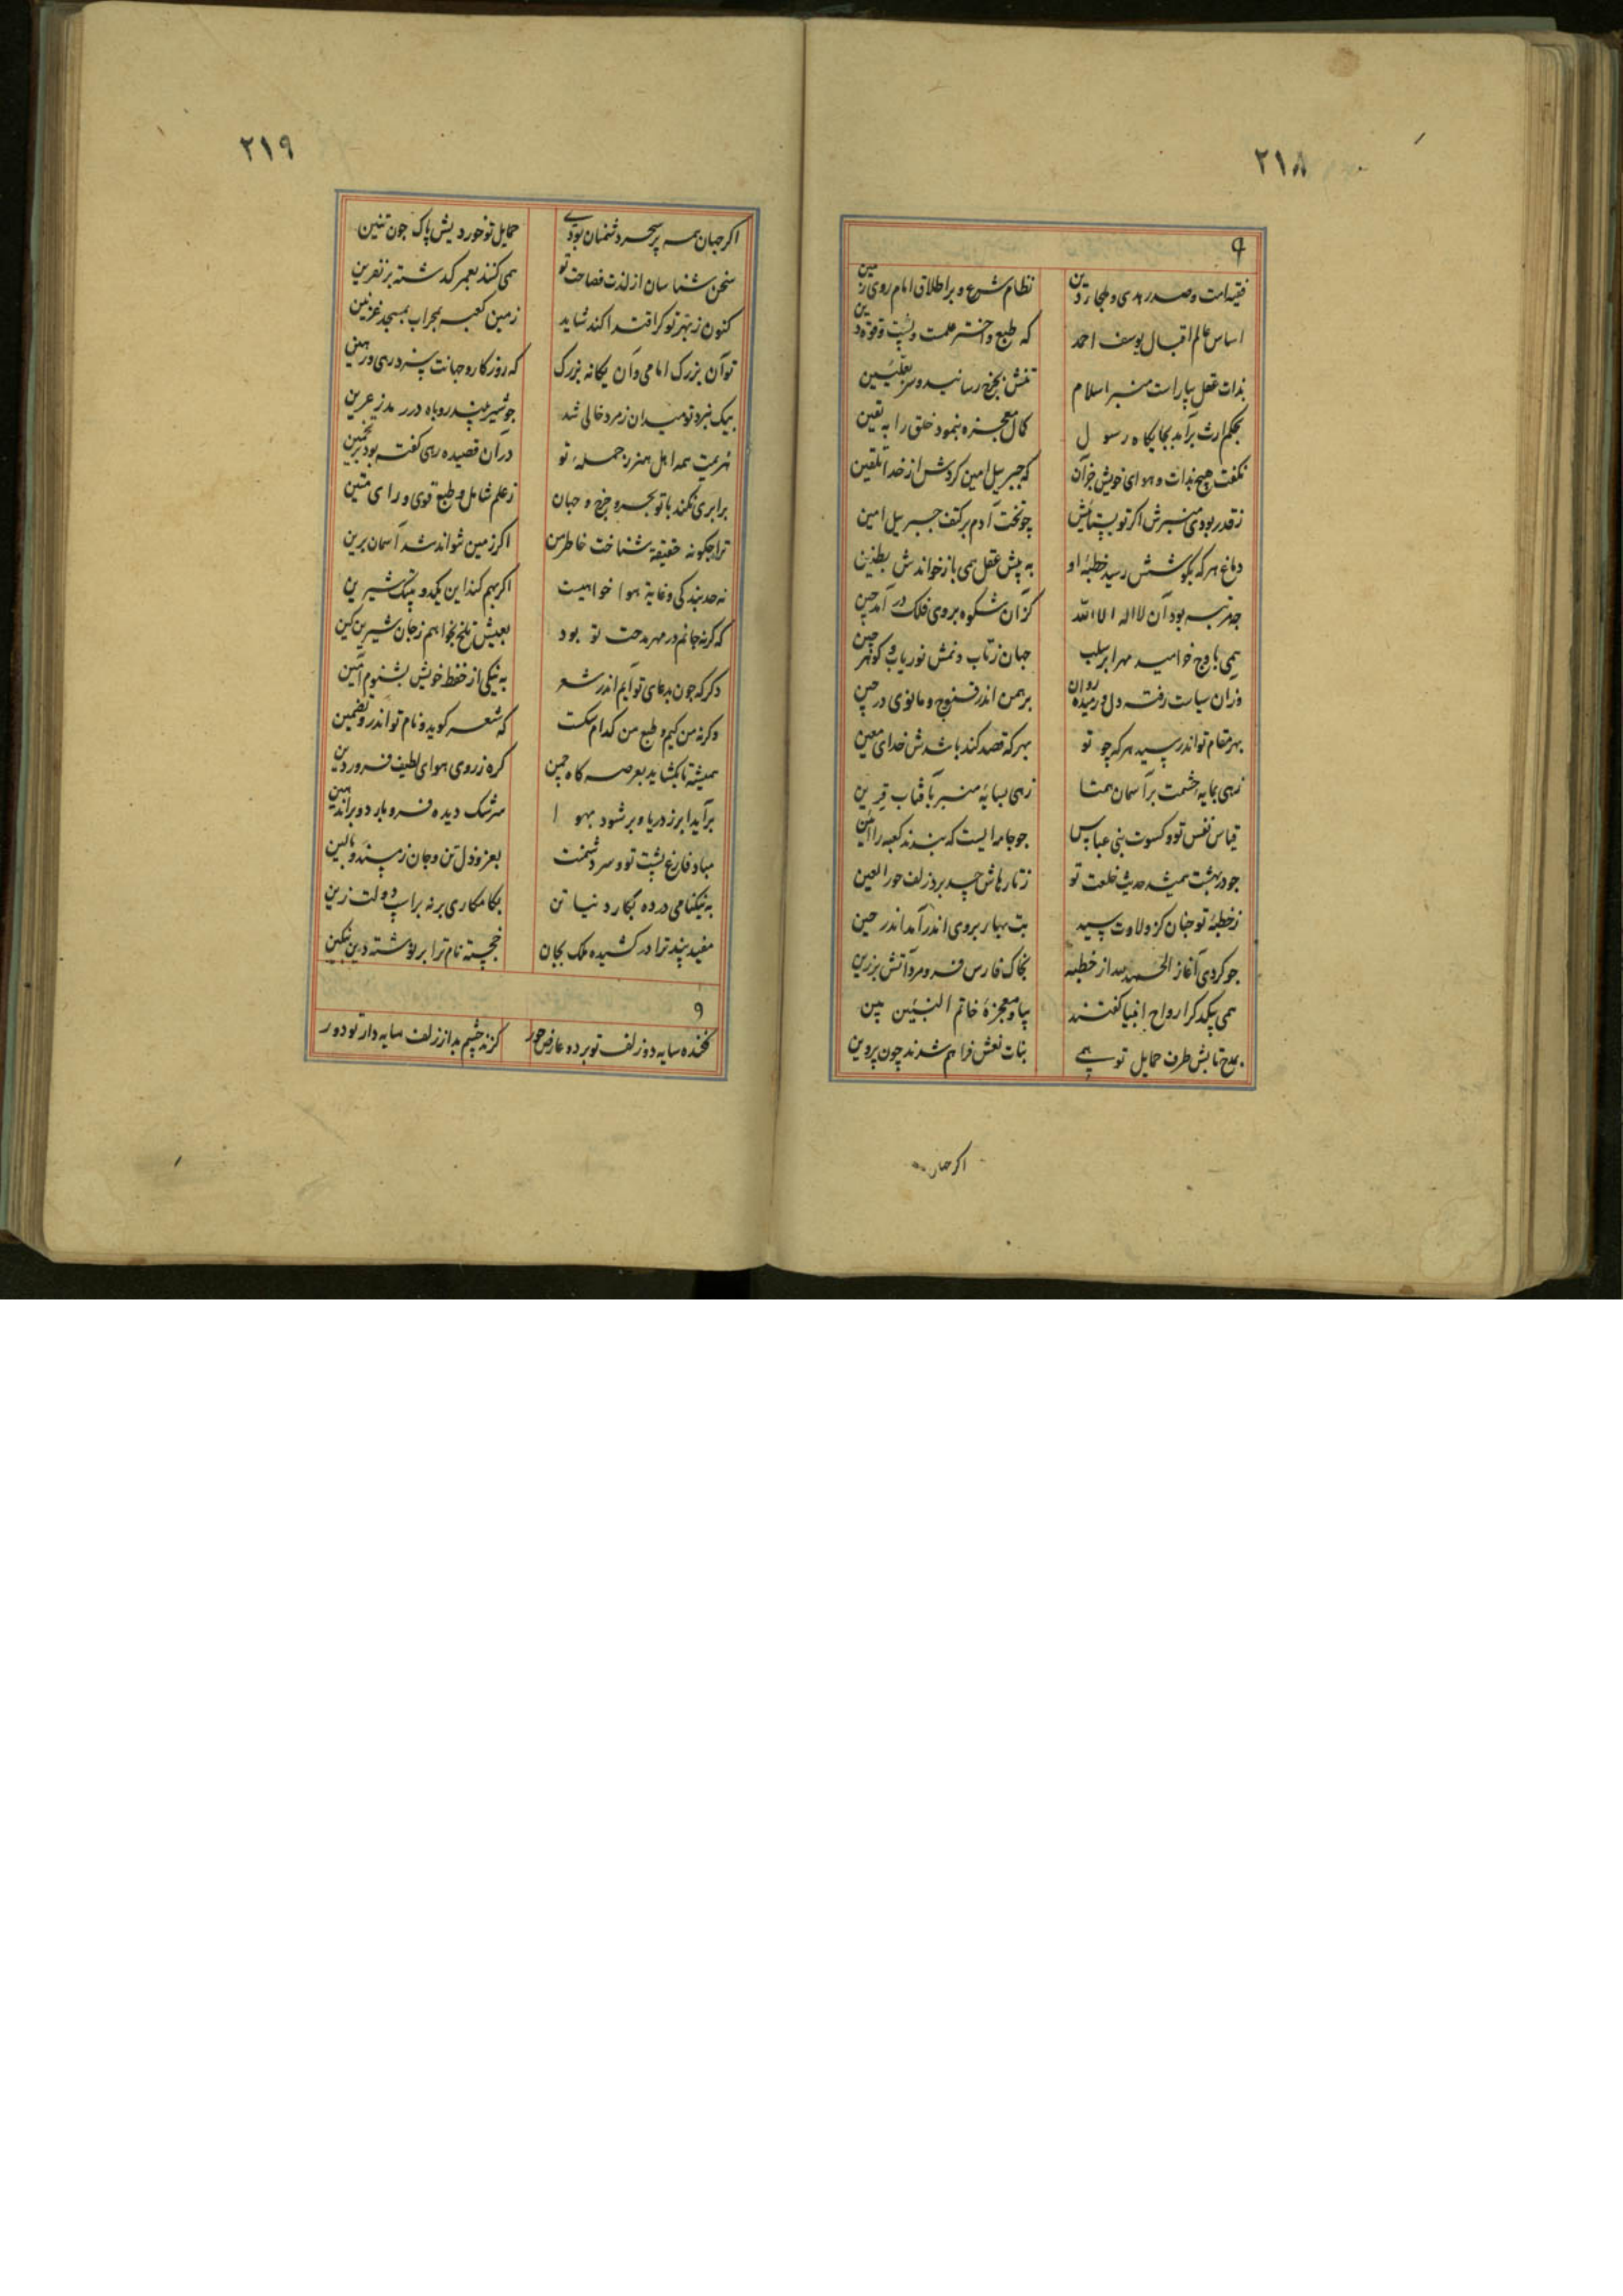 ۲۱۸
۹
فقیه امت و صدر هدی و ملجا دین نظام شرع و براطلاق امام روی زمین
اساس عالم اقبال یوسف احمد که طبع و اختر علمت و پشت و قوة دین
بذات عقل بیاراست منبر اسلام تنش بچرخ رسانید و سر بعلیین
بحکم ارث برآمد بجایکاه رسول کمال معجزه بنمود خلق را به یقین
نکفت هیچ بذات و هوای خویش جز آن که جبریل امین کردش از خدا تلقین
ز قدر بودی منبرش اکر تو چو تخت آدم بر کتف جبریل امین
دماغ هر که بکوشش رسید خطبهٔ او به پیش عقل همی باز خواندش
چه مرتبه بود آن لا اله الا الله کز آن شکوه بروی فلک در آمد چین
همی باوج خوامید جهان ز تاب و نمش نور یاب و کوهر چین
وزان سیاست رفته دل و رمیده روان برهمن اندر قنوج و مانوی در چین
بهر مقام تواند رسید هر که چو تو بهر که قصد کند باشدش خدای معین
زهی بمایه حشمت بر آسمان همتا زهی بپایهٔ منبر بآفتاب قرین
قیاس نفس تو و کسوت بنی عباس جو جامه ایست که بندند کعبه را آیین
جو در بهشت همیشد حدیث خلعت تو ز تارهاش حسد برد زلف حور العین
ز خطبهٔ تو جنان کز ولاوت سید بت بهار بروی اندر آمد اندر حین
جو کردی آغاز الحمد لله از خطبه بخاک فارس فرو مرد آتش برزین
همی بیکدکر ارواح انبیا کفتند بیا و معجزهٔ خاتم النبیین بین
بمدح تابش طرف حمایل تو همی بنات نعش فراهم شدند چون پروین
اکر جهان
۲۱۹
اکر جهان همه پر سحر دشمنان بودی حمایل تو خوردیش پاک جون تنین
سخن شناسان از لذت فصاحت تو همی کنند بعمر کدشته بر نفرین
کنون ز بهر تو کر اقتدا کند شاید زمین کعبه بمحراب مسجد غزنین
تو آن بزرک امامی و آن یکانه بزرک که روزکار و جهانت
بیک نبرد تو میدان ز مرد خالی شد جو شیر بیند روباه در رمد ز عرین
هزیمت همه اهل هنر ز جملهٔ تو در آن قصیده رهی کفته بود
برابری نکند با تو بحر و چرخ و جهان ز علم شامل و طبع قوی و رای متین
ترا جکونه حقیقة شناخت خاطر من اکر زمین نتواند شد آسمان برین
نه حد بندکی و غایة هوا خواهیست اکر بهم کند این یکدو بیتک شیرین
که کر نه جانم در مهر مدحت تو بود بعیش تلخ نخواهم ز جان شیرین کین
دکر که جون بدعای تو آیم اندر شعر به نیکی از خفظ خویش بشنوم آمین
و کر نه من کیم و طبع من کدام سکت که شعر کوید و نام تو اندرو تضمین
همیشه تا بکشاید بعرصه کاه جمن کره ز روی هوای لطیف فروردین
برآید ابر ز دریا و بر شود بهوا سرشک دیده فرو بارد و براند هین
مباد فارغ پشت تو و سر دشمنت بعز و ذل تن و جان ز مسند و بالین
به نیکنامی در ده بکار دنیا تن بکامکاری برنه براسپ دولت زین
مفید پند ترا در کشیده ملک بجان خجسته نام ترا بر نوشته دین بنکین
۹
فکنده سایه دو زلف تو بر دو عارض حور کزند چشم بد از زلف سایه دار تو دور